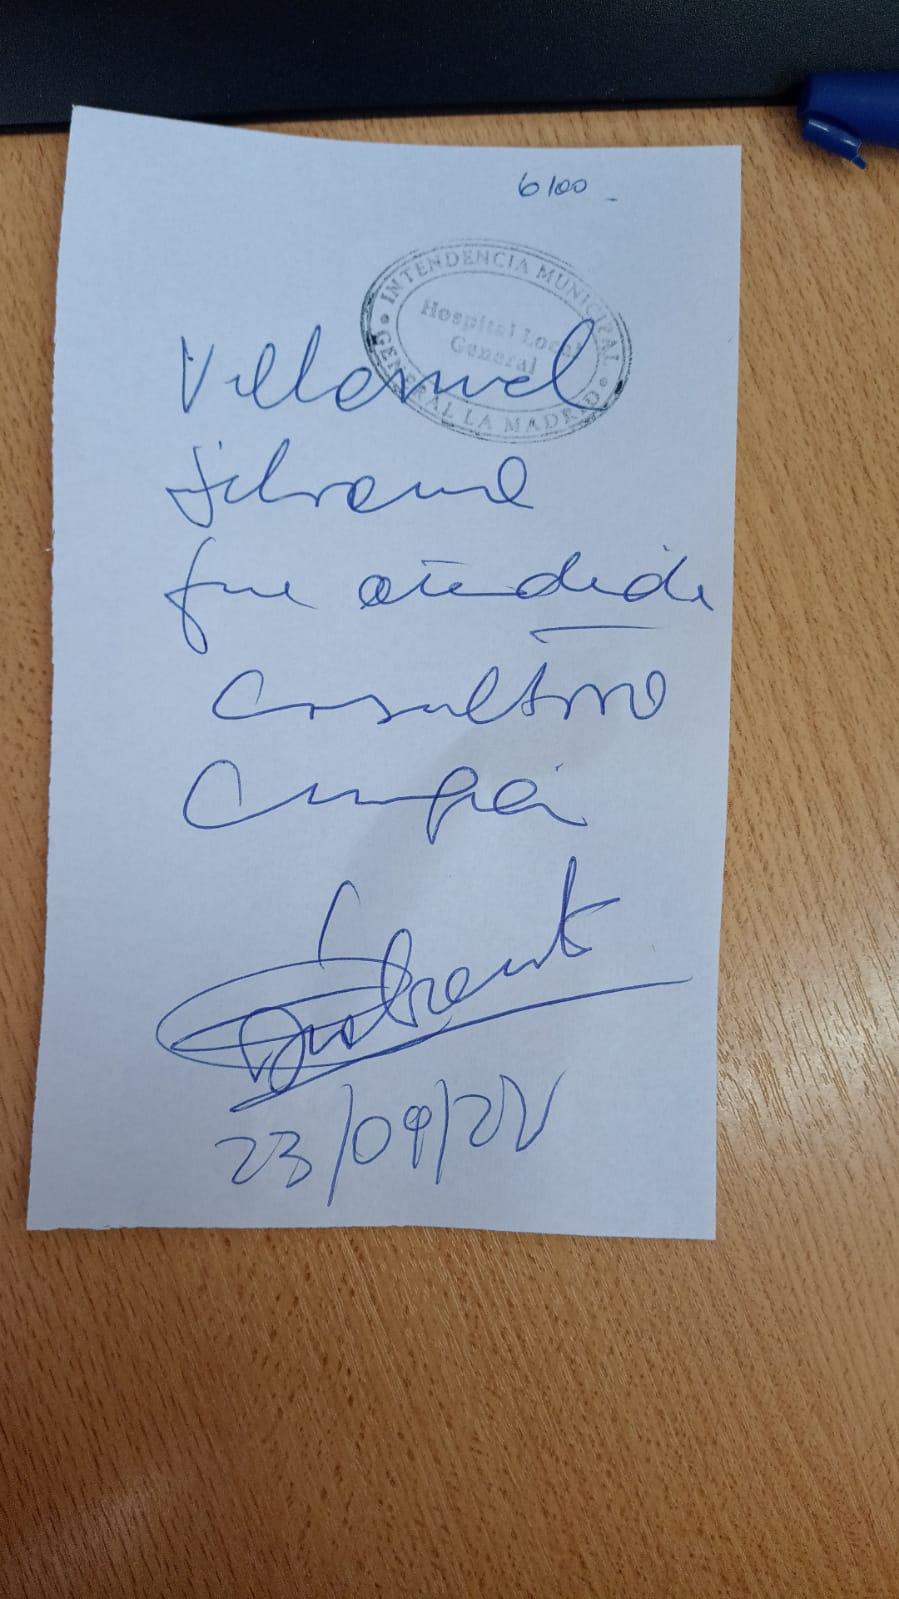 6100 -
INTENDENCIA MUNICIPAL
Hospital Local
General
GENERAL LA MADRID
Silvana
fue atendida
consultorio
Cirugía
23/09/22